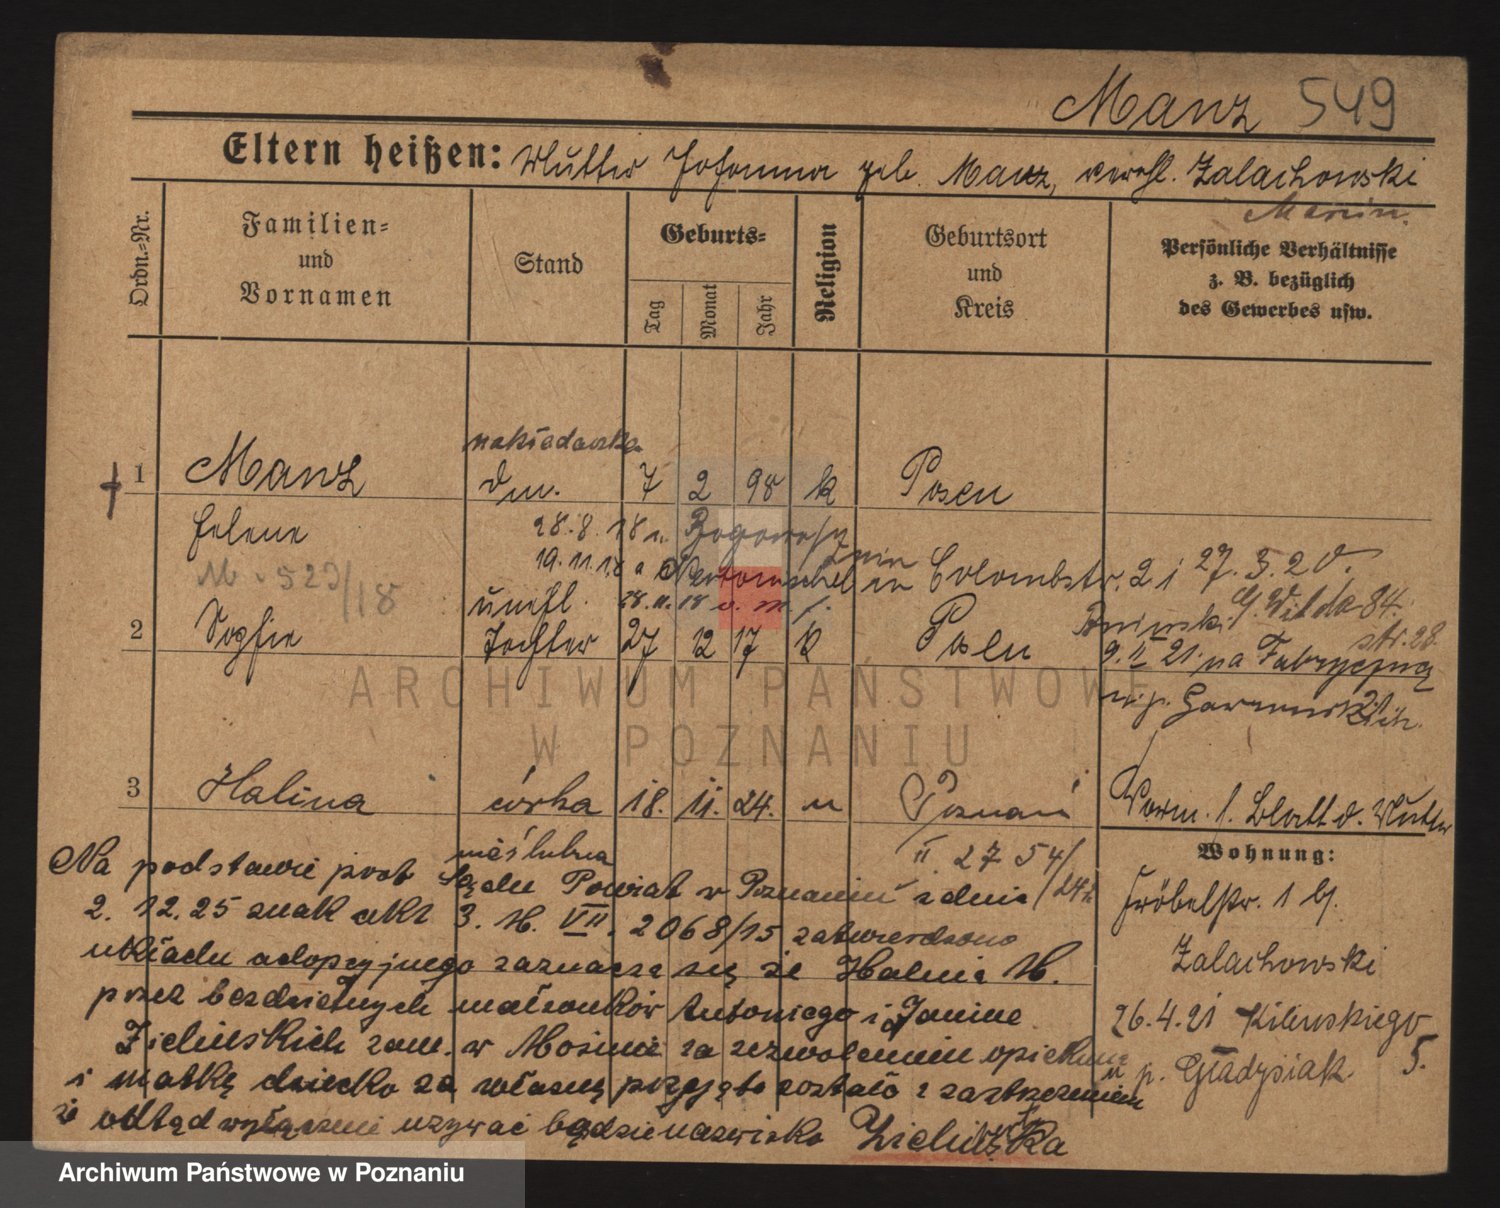 Manz 549
Eltern heißen: Mutter Johanna geb. Manz, verehl. Zalachowski
Marcin.
Ordn.=Nr.
Familien=
und
Vornamen
Stand
Geburts=
Tag
Monat
Jahr
Religion
Geburtsort
und
Kreis
Persönliche Verhältnisse
z. B. bezüglich
des Gewerbes usw.
nakładaczka
1 Manz 7 2 98 k Posen
Helene 28.8.18 n.
19.11.18 Colombstr. 2 i 27. 3. 20.
M. 523/18 unehl. 28.11.18 v. G. Wilda 84.
2 Sophie Tochter 27 12 17 k Posen
str. 28.
9. II 21. na Fabryczną
u p.
3 Halina córka 18. 11. 24. " Poznań
Vorm. s. Blatt d. Mutter
nieślubna
II 27 54/24
Wohnung:
Na podstawie post Sądu Powiat w Poznaniu z dnia
Fröbelstr. 1 b/.
2. 12. 25 znak akt 3. M. VII. 2068/15 zatwierdzono
Zalachowski
układu adopcyjnego zaznacza się że Halinę M.
przez bezdzietnych małżonków Antoniego i Janinę
26.4.21 Kilińskiego
5.
Zielińskich zam. w Mosinie za zezwoleniem opiekuna
u p. Gładysiak
i matkę dziecko za własną przyjęte zostało z zastrzeżeniem
że odtąd wyłącznie używać będzie nazwisko Zielińska
ARCHIWUM PAŃSTWOWE
W POZNANIU
Archiwum Państwowe w Poznaniu